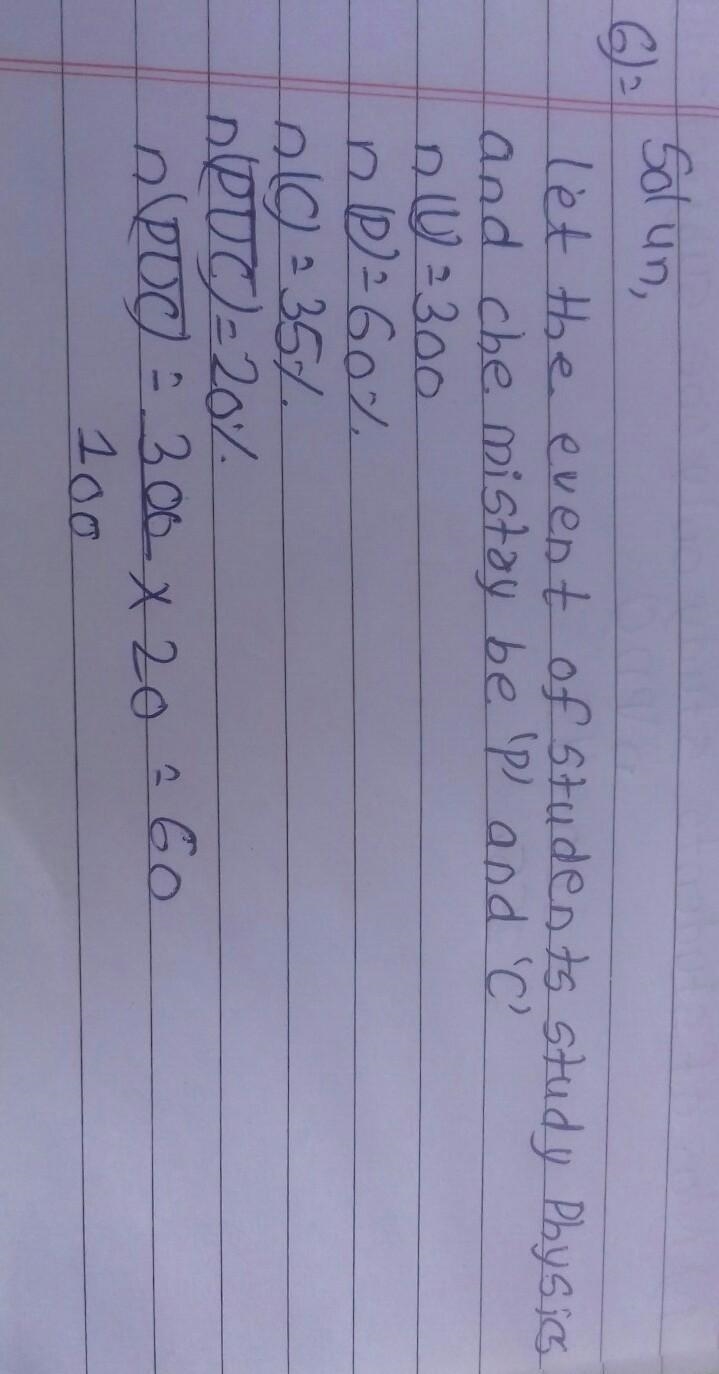 6)= Sol un,
let the event of students study Physics
and chemistry be 'P' and 'C'
n(U) = 300
n(P) = 60%.
n(C) = 35%.
n(P̅U̅C̅) = 20%.
n(P̅U̅C̅) = 300 × 20 = 60
100